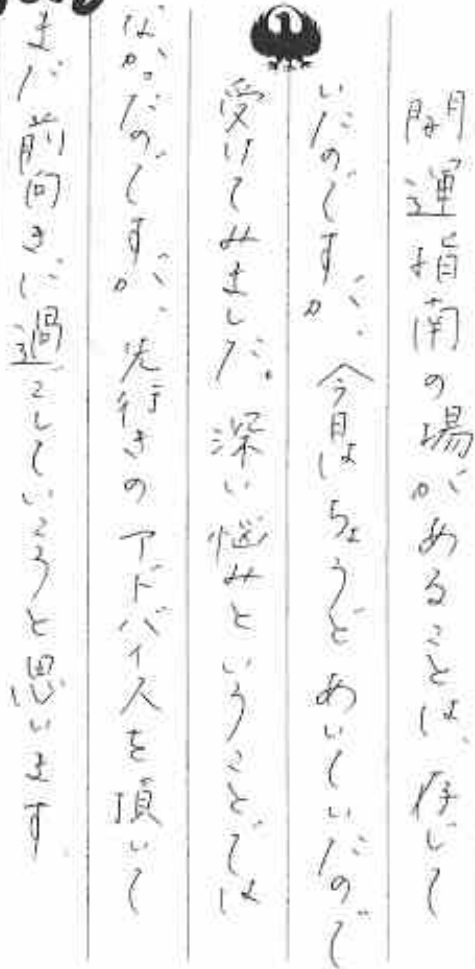 開運指南の場があることは、存じて
いたのですが、今日はちょうどあいていたので
受けてみました。深い悩みということでは
なかったのですが、先行きのアドバイスを頂いて
また前向きに過ごしていこうと思います